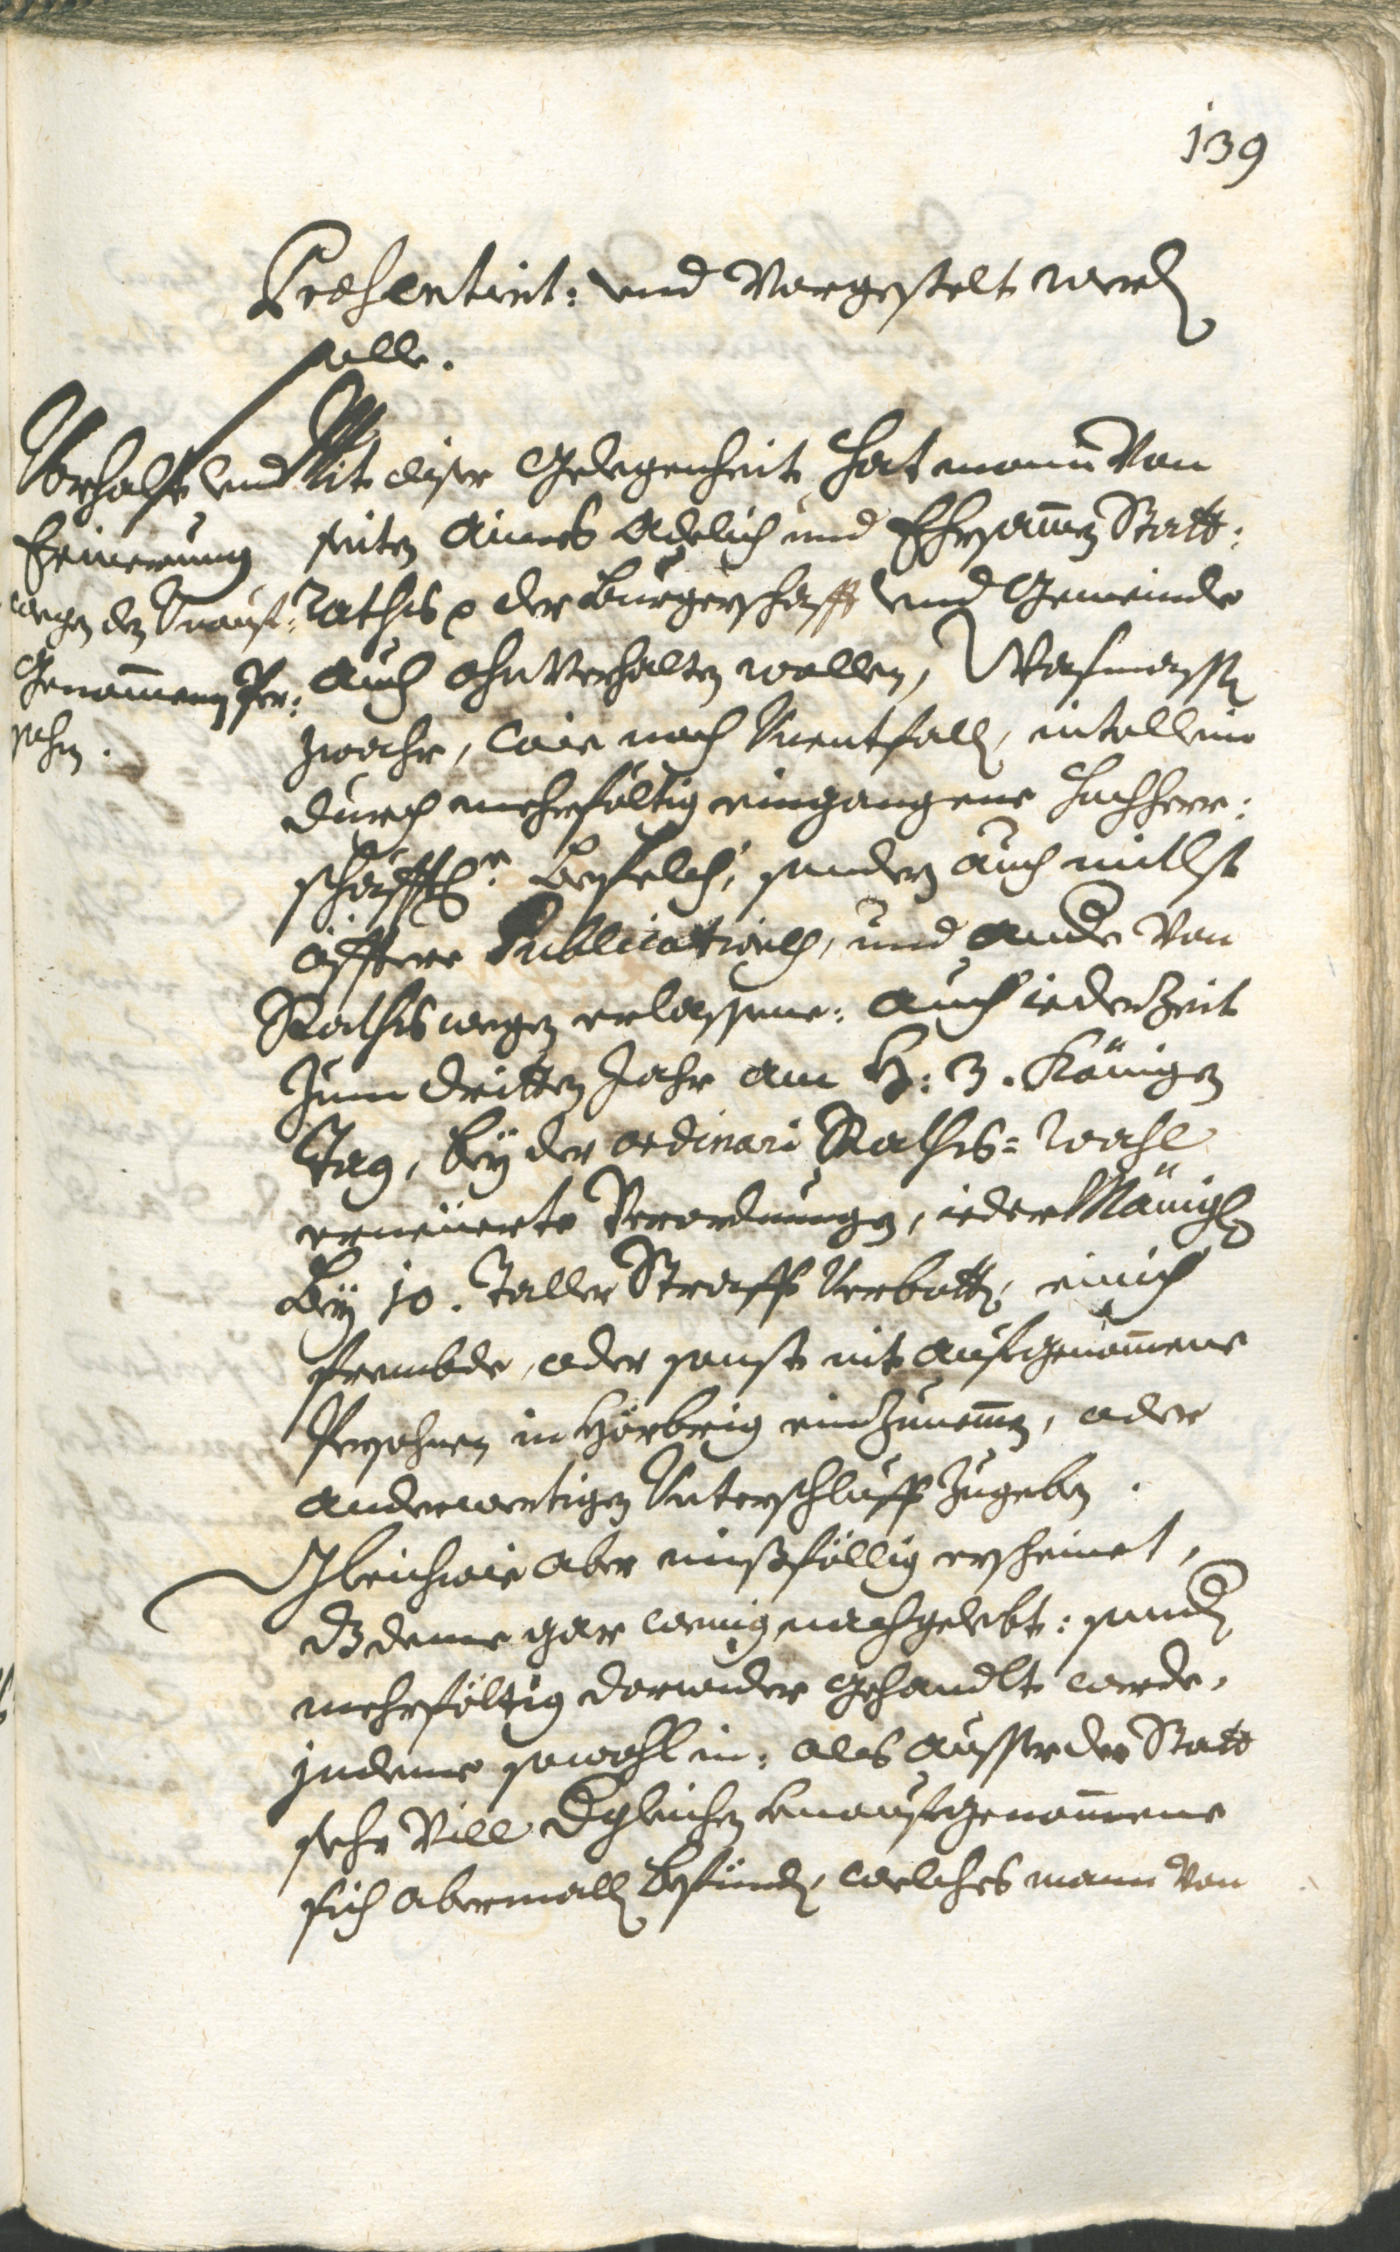 139
Præsentirt: und Vorgestelt werd
solle.
Vorhalt und
Erinnerung
wegen der Unauf:
Genommenen Per:
sohnen.
Mit diser Gelegenheit hat mann Von
seiten Aines Adelich und Ehrsamen Statt:
Raths der Burgerschafft und Gemeinde
Auch ohnVerhalten wollen, Wasmassen
zwahr, nit allein
durch mehrfältig eingangene Hochherr:
schafftl. Befelch, sondern auch mitlst
öfftere Publicationen, und andere Von
Raths wegen erlassene: Auch iederzeit
zum dritten Jahr am H: 3. Königen
Tag, bey der ordinari Raths=wahl
erneüerte Verordnungen, iedermänigl
Bey 10. Taller Straff Verbotten, einich
frembde, oder sonst nit aufgenommene
Persohnen in Hörbrig einzunemen, oder
anderwertigen Unterschlupff zugeben.
Gleichwie aber mißfällig erscheinet,
dz deme gar wenig nachgelebt: sondern
mehrfältig darwider gehandlt werde,
indeme sowohl in: als ausser der Statt
sehr Vill dgleichen unaufgenommene
sich abermall befinden, welches mann Von